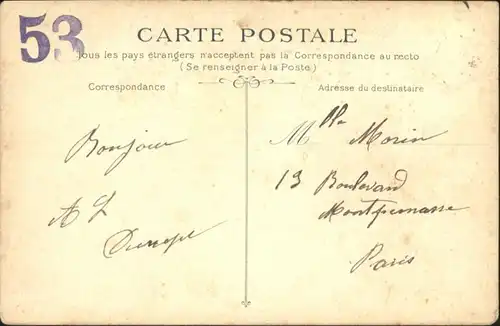 53
CARTE POSTALE
Tous les pays étrangers n'acceptent pas la Correspondance au recto
(Se renseigner à la Poste)
Correspondance
Adresse du destinataire
Bonjour
Mlle Morin
13 Boulevard
Montparnasse
Paris